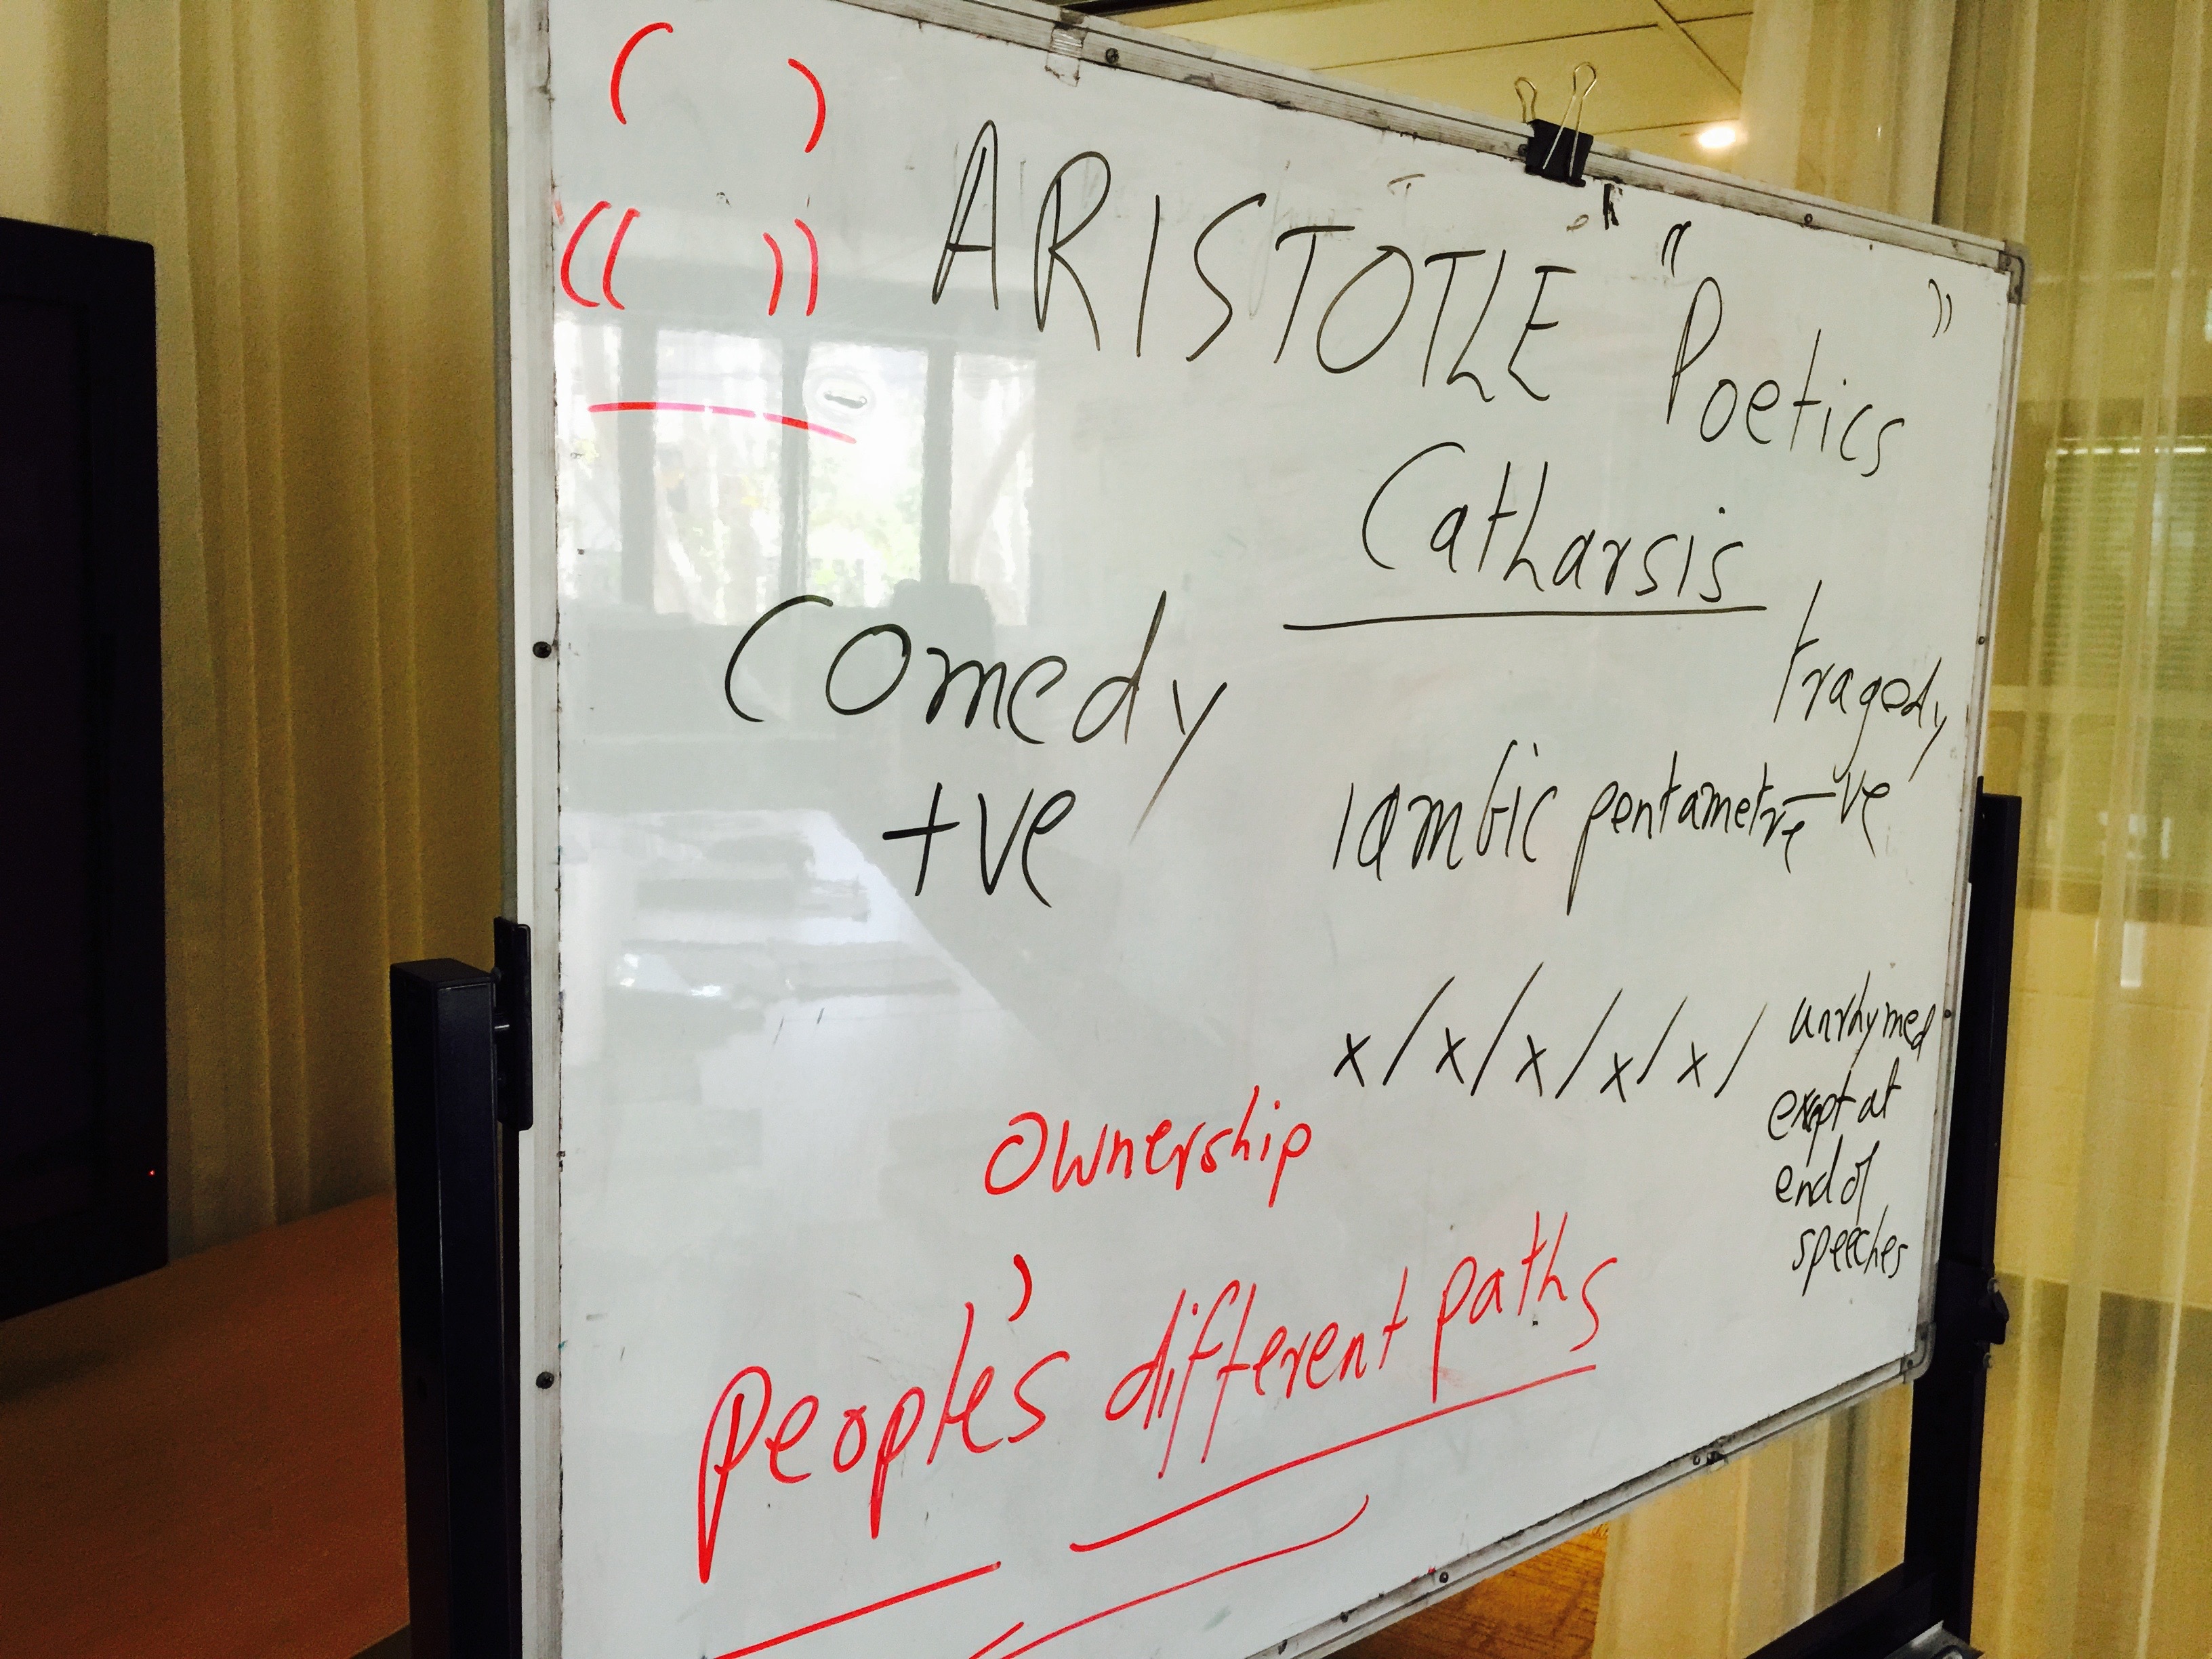 ( )
(( ))
ARISTOTLE "Poetics"
Catharsis
Comedy
tragedy
+ve
-ve
Iambic pentametre
x/x/x/x/x/
unrhymed
exept at
end of
speeches
Ownership
People's different paths